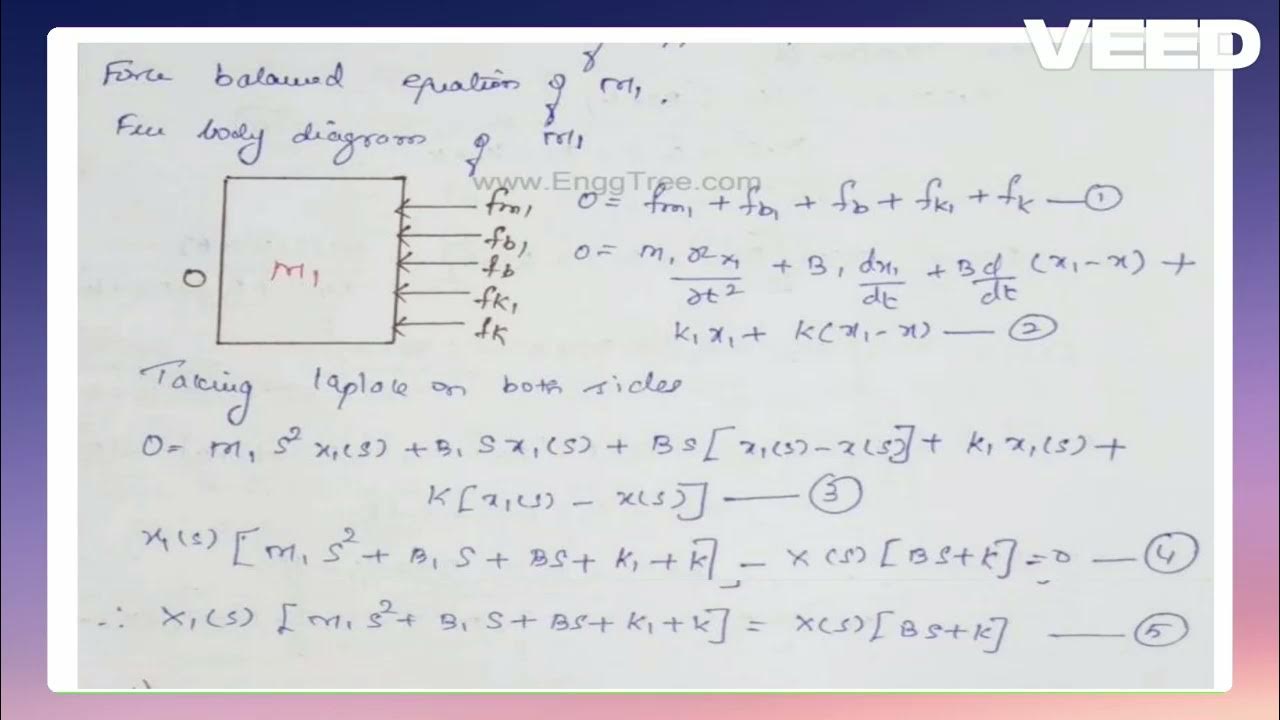 VEED
Force balanced equation of m₁.
Free body diagram of m₁
www.EnggTree.com
0
m₁
fm₁
fb₁
fb
fk₁
fk
0 = fm₁ + fb₁ + fb + fk₁ + fk — ①
0 = m₁ ∂²x₁/∂t² + B₁ dx₁/dt + B d/dt (x₁ - x) +
k₁x₁ + k(x₁ - x) — ②
Taking laplace on both sides
0 = m₁ s² x₁(s) + B₁ S x₁(s) + BS[x₁(s) - x(s)] + k₁ x₁(s) +
K[x₁(s) - x(s)] — ③
x₁(s) [m₁ s² + B₁ S + BS + k₁ + k] - X(s) [BS+k] = 0 — ④
∴ X₁(s) [m₁ s² + B₁ S + BS + k₁ + k] = X(s) [BS+k] — ⑤